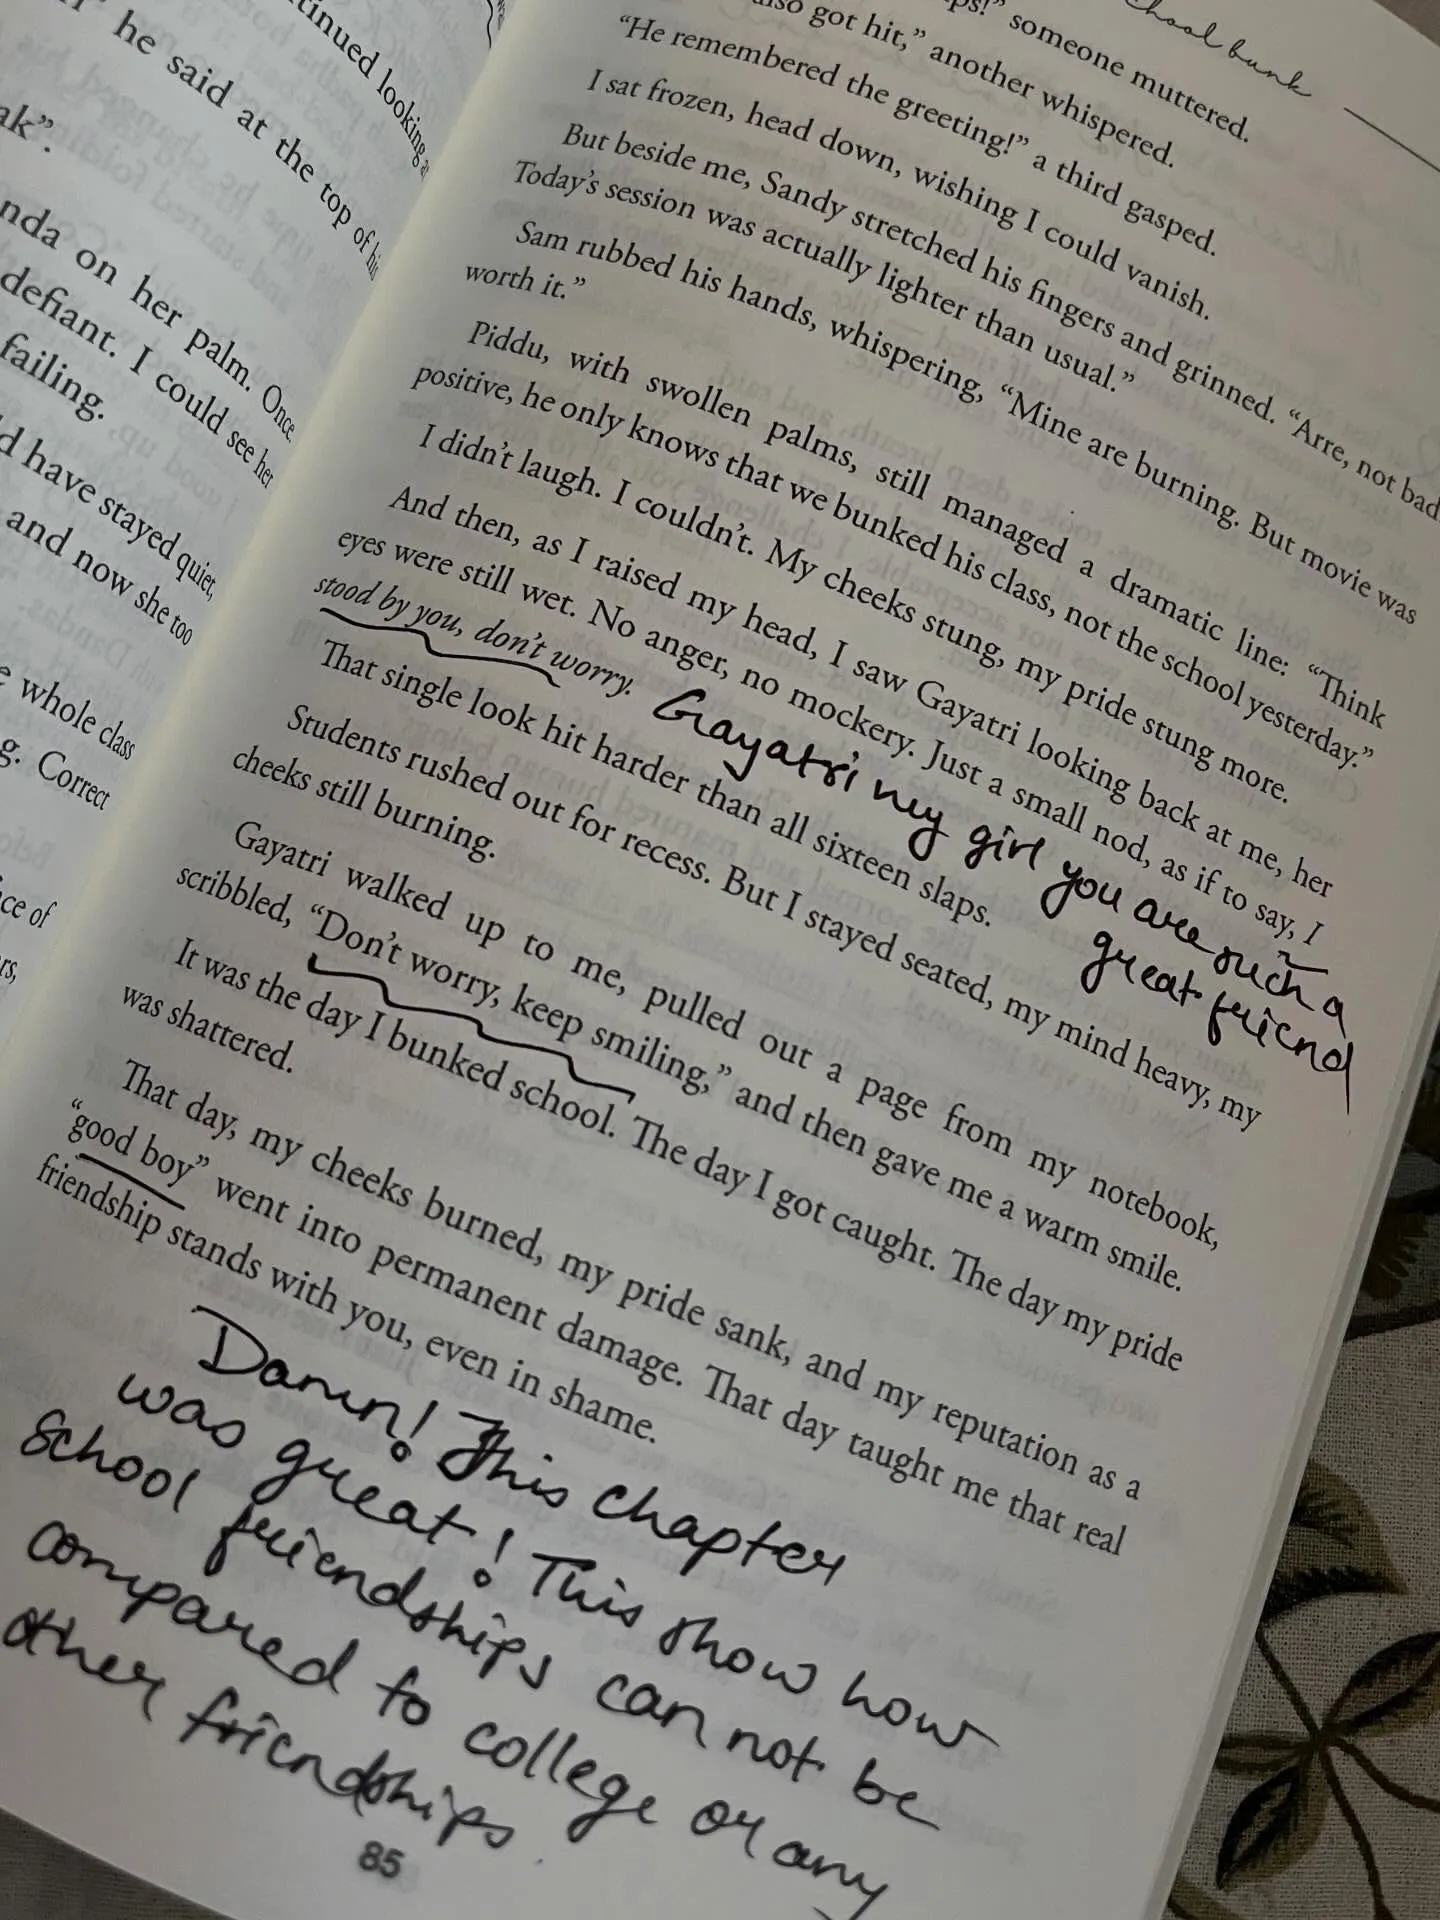 tinued looking
he said at the top of his
ak”.
nda on her palm. Once.
defiant. I could see her
failing.
d have stayed quiet,
and now she too
e whole class
g. Correct
ce of
rs,
hool bunk
ps!” someone muttered.
also got hit,” another whispered.
“He remembered the greeting!” a third gasped.
I sat frozen, head down, wishing I could vanish.
But beside me, Sandy stretched his fingers and grinned. “Arre, not bad
Today’s session was actually lighter than usual.”
Sam rubbed his hands, whispering, “Mine are burning. But movie was
worth it.”
Piddu, with swollen palms, still managed a dramatic line: “Think
positive, he only knows that we bunked his class, not the school yesterday.”
I didn’t laugh. I couldn’t. My cheeks stung, my pride stung more.
And then, as I raised my head, I saw Gayatri looking back at me, her
eyes were still wet. No anger, no mockery. Just a small nod, as if to say, I
stood by you, don’t worry.
Gayatri my girl you are such a
great friend
That single look hit harder than all sixteen slaps.
Students rushed out for recess. But I stayed seated, my mind heavy, my
cheeks still burning.
Gayatri walked up to me, pulled out a page from my notebook,
scribbled, “Don’t worry, keep smiling,” and then gave me a warm smile.
It was the day I bunked school. The day I got caught. The day my pride
was shattered.
That day, my cheeks burned, my pride sank, and my reputation as a
“good boy” went into permanent damage. That day taught me that real
friendship stands with you, even in shame.
Damn! This chapter
was great! This show how
school friendships can not be
compared to college or any
other friendships.
85